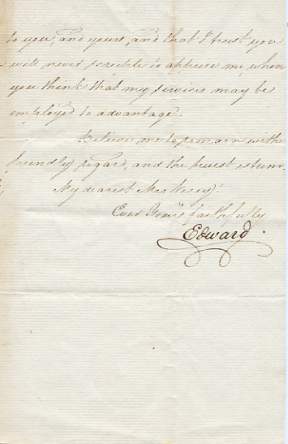 to you, and yours, and that I trust you
will never scruple to apprise me, when
you think that my services may be
employed to advantage.
Believe me to remain with
friendly regard, and the truest esteem,
My dearest
Ever Yours faithfully
Edward.